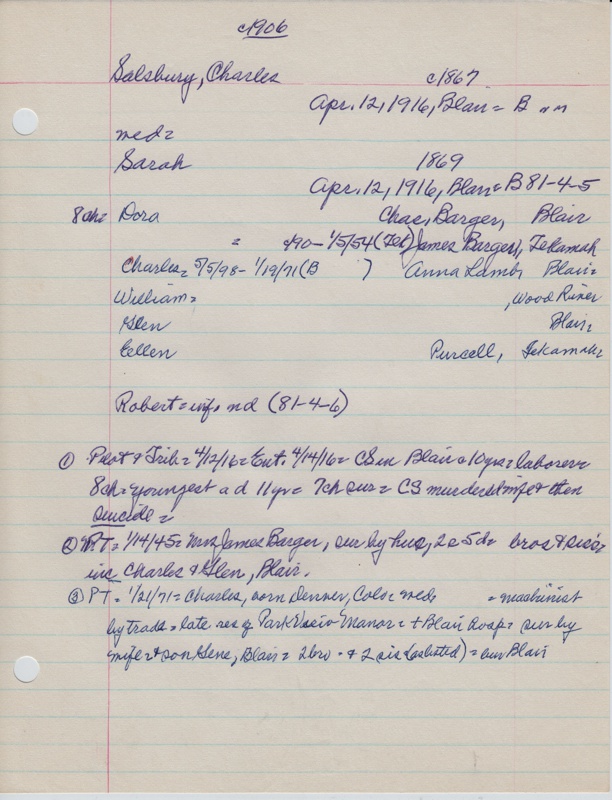 c1906
Salsbury, Charles c1867
Apr. 12, 1916, Blair = B
med=
Sarah 1869
Apr. 12, 1916, Blair = B 81-4-5
8ch= Dora Chas, Barger, Blair
= c90 - 1/5/54 (Tek) James Barger, Tekamah
Charles = 5/5/98 - 1/19/71 (B ) Anna Lamb, Blair =
William = , Wood River
Glen Blair =
Eellen Purcell, Tekamah =
Robert = inf = nd (81-4-6)
① Pilot & Trib = 4/12/16 = Ent 4/14/16 = CS in Blair = 10 yrs = laborer =
8ch = youngest a d 11 yr = 7ch sur = CS murdered wife & then
suicide =
② PT = 1/14/45 = Mrs James Barger, sur by hus, 2s 5d = bros & sis =
inc Charles & Glen, Blair.
③ PT = 1/21/71 = Charles, born Denver, Colo = med = machinist
by trade = late res of Park Manor = + Blair hosp = sur by
wife & son Gene, Blair = 2 bro - & 2 sis (as listed) = bur Blair